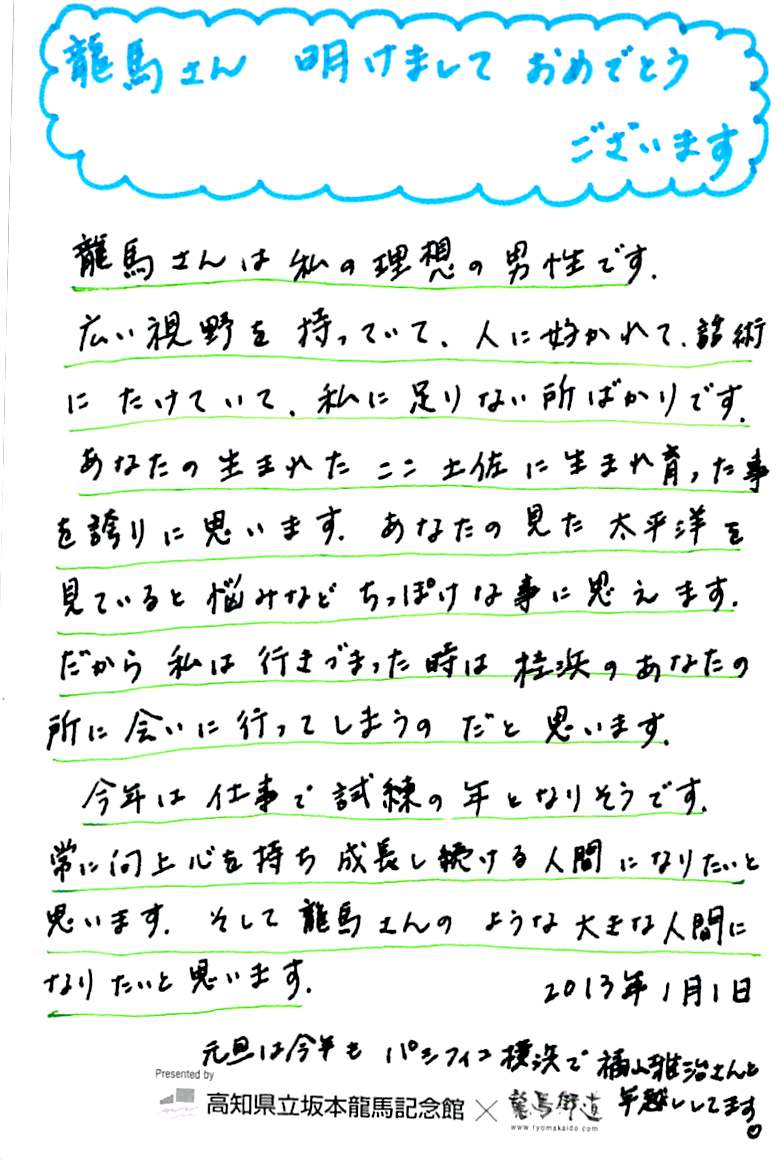 龍馬さん 明けまして おめでとう
ございます
龍馬さんは私の理想の男性です.
広い視野を持っていて、人に好かれて、話術
にたけていて、私に足りない所ばかりです.
あなたの生まれたここ土佐に生まれ育った事
を誇りに思います. あなたの見た太平洋を
見ていると悩みなどちっぽけな事に思えます.
だから私は行きづまった時は桂浜のあなたの
所に会いに行ってしまうのだと思います.
今年は仕事で試練の年となりそうです.
常に向上心を持ち成長し続ける人間になりたいと
思います. そして龍馬さんのような大きな人間に
なりたいと思います.
2013年1月1日
元旦は今年もパシフィコ横浜で福山雅治さんと
年越ししてます。
Presented by
高知県立坂本龍馬記念館 × 龍馬街道
www.ryomakaido.com